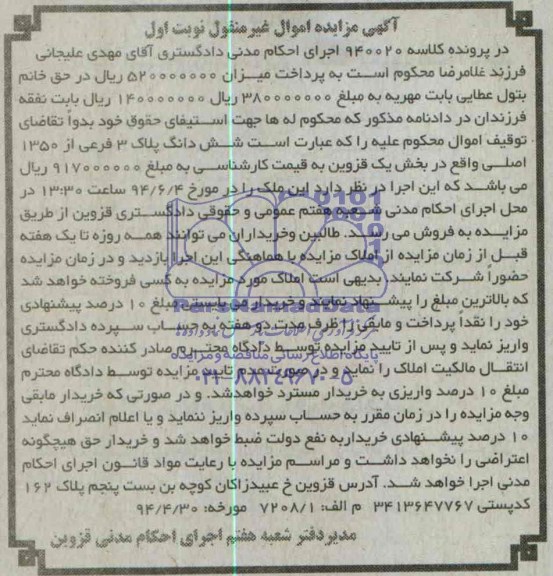 آگهی مزایده اموال غیرمنقول نوبت اول
در پرونده کلاسه ۹۴۰۰۲۰ اجرای احکام مدنی دادگستری آقای مهدی علیجانی
فرزند غلامرضا محکوم است به پرداخت میزان ۵۲۰۰۰۰۰۰۰ ریال در حق خانم
بتول عطایی بابت مهریه به مبلغ ۳۸۰۰۰۰۰۰۰ ریال ۱۴۰۰۰۰۰۰۰ ریال بابت نفقه
فرزندان در دادنامه مذکور که محکوم له ها جهت استیفای حقوق خود بدوا تقاضای
توقیف اموال محکوم علیه را که عبارت است شش دانگ پلاک ۳ فرعی از ۱۳۵۰
اصلی واقع در بخش یک قزوین به قیمت کارشناسی به مبلغ ۹۱۷۰۰۰۰۰۰ ریال
می باشد که این اجرا در نظر دارد این ملک را در مورخ ۹۴/۶/۴ ساعت ۱۳:۳۰ در
محل اجرای احکام مدنی شعبه هفتم عمومی و حقوقی دادگستری قزوین از طریق
مزایده به فروش می رسد. طالبین وخریداران می توانند همه روزه تا یک هفته
قبل از زمان مزایده از املاک مزایده با هماهنگی این اجرا بازدید و در زمان مزایده
حضوراً شرکت نمایند، بدیهی است املاک مورد مزایده به کسی فروخته خواهد شد
که بالاترین مبلغ را پیشنهاد نمایند و خریدار می بایستی مبلغ ۱۰ درصد پیشنهادی
خود را نقداً پرداخت و مابقی را ظرف مدت دو هفته به حساب سپرده دادگستری
واریز نماید و پس از تایید مزایده توسط دادگاه محترم صادر کننده حکم تقاضای
انتقال مالکیت املاک را نماید و در صورت عدم تایید مزایده توسط دادگاه محترم
مبلغ ۱۰ درصد واریزی به خریدار مسترد خواهدشد. و در صورتی که خریدار مابقی
وجه مزایده را در زمان مقرر به حساب سپرده واریز ننماید و یا اعلام انصراف نماید
۱۰ درصد پیشنهادی خریداربه نفع دولت ضبط خواهد شد و خریدار حق هیچگونه
اعتراضی را نخواهد داشت و مراسم مزایده با رعایت مواد قانون اجرای احکام
مدنی اجرا خواهد شد. آدرس قزوین خ عبیدزاکان کوچه بن بست پنجم پلاک ۱۶۲
کدپستی ۳۴۱۳۶۴۷۷۶۷ م الف: ۷۲۰۸/۱ مورخه: ۹۴/۴/۳۰
مدیردفتر شعبه هفتم اجرای احکام مدنی قزوین
ParsNamadData
پایگاه اطلاع رسانی مناقصه و مزایده
۰۲۱-۸۸۳۴۹۶۷۰-۵